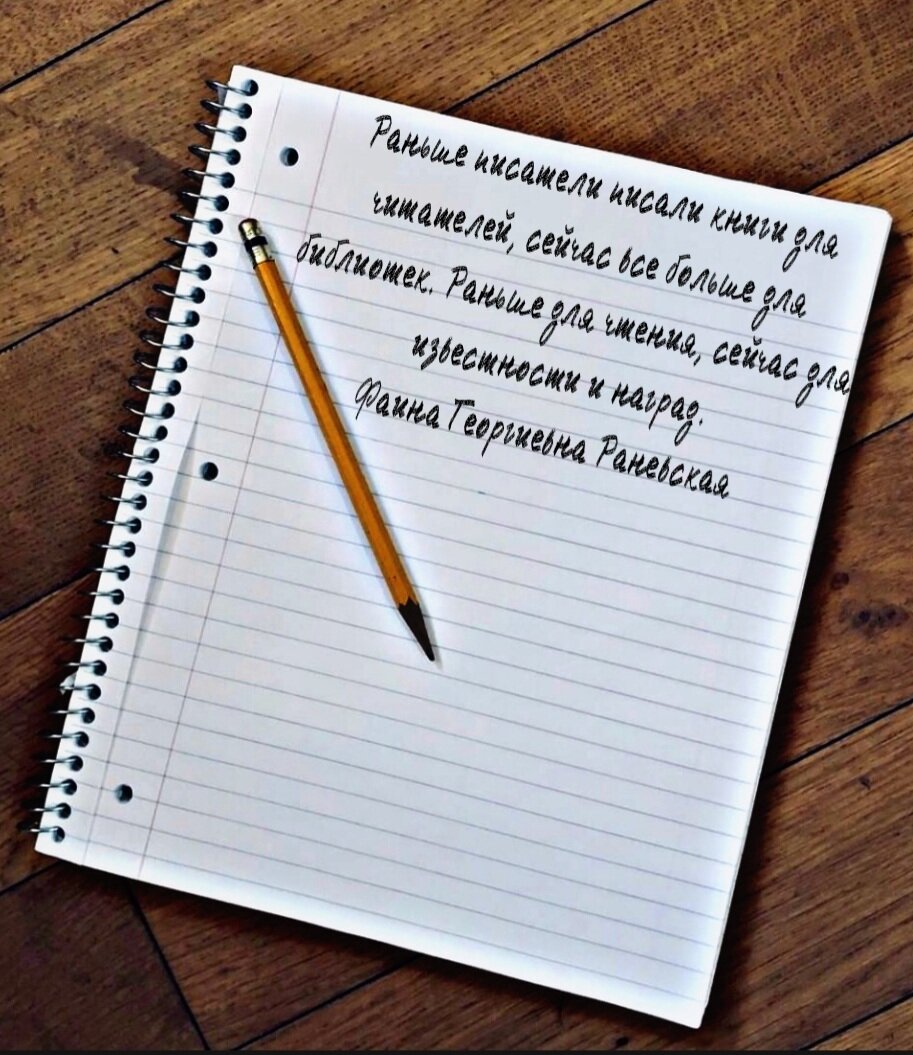 Раньше писатели писали книги для
читателей, сейчас все больше для
библиотек. Раньше для чтения, сейчас для
известности и наград.
Фаина Георгиевна Раневская